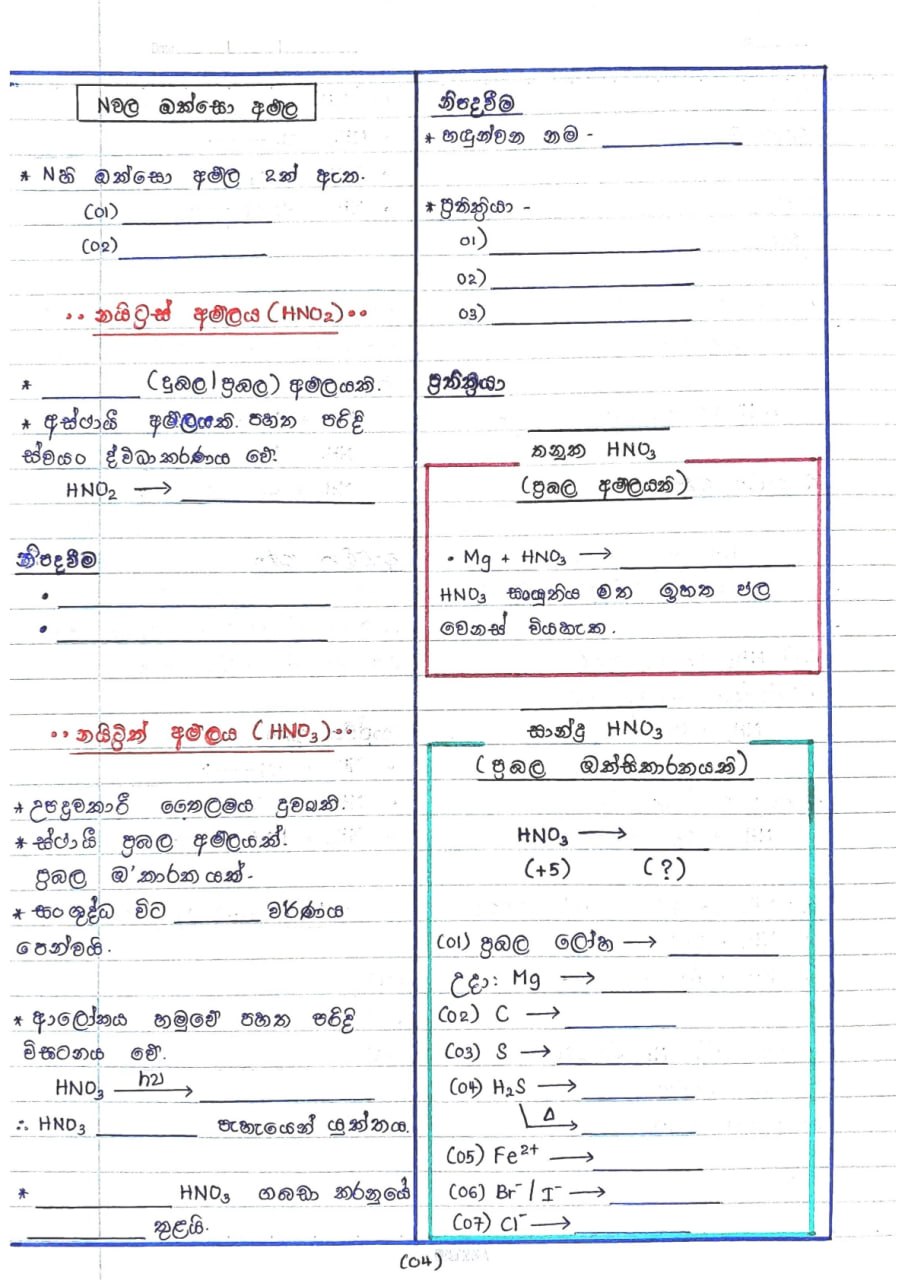 Nවල ඔක්සො අම්ල
* Nහි ඔක්සො අම්ල 2ක් ඇත.
(01) ____________
(02) ____________
•• නයිට්‍රස් අම්ලය (HNO₂) ••
* ________ (දුබල / ප්‍රබල) අම්ලයකි.
* අස්ථායී අම්ලයකි. පහත පරිදි
ස්වයං ද්විධාකරණය වේ.
HNO₂ → ____________
නිපදවීම
• ____________
• ____________
•• නයිට්‍රික් අම්ලය (HNO₃) ••
* උපද්‍රවකාරී තෛලමය ද්‍රවයකි.
* ස්ථායී ප්‍රබල අම්ලයක්.
ප්‍රබල ඔ'කාරකයක්.
* සංශුද්ධ විට ________ වර්ණය
පෙන්වයි.
* ආලෝකය හමුවේ පහත පරිදි
විඝටනය වේ.
HNO₃ hν → ____________
∴ HNO₃ ________ පැහැයෙන් යුක්තය.
* ____________ HNO₃ ගබඩා කරනුයේ
____________ තුළයි.
නිපදවීම
* හඳුන්වන නම - ____________
* ප්‍රතික්‍රියා -
01) ____________
02) ____________
03) ____________
ප්‍රතික්‍රියා
තනුක HNO₃
(ප්‍රබල අම්ලයකි)
• Mg + HNO₃ → ____________
HNO₃ සංයුතිය මත ඉහත ඵල
වෙනස් වියහැක.
සාන්ද්‍ර HNO₃
(ප්‍රබල ඔක්සිකාරකයකි)
HNO₃ → ________
(+5) (?)
(01) ප්‍රබල ලෝහ → ________
උදා: Mg → ________
(02) C → ________
(03) S → ________
(04) H₂S → ________
Δ → ________
(05) Fe²⁺ → ________
(06) Br⁻ / I⁻ → ________
(07) Cl⁻ → ________
(04)